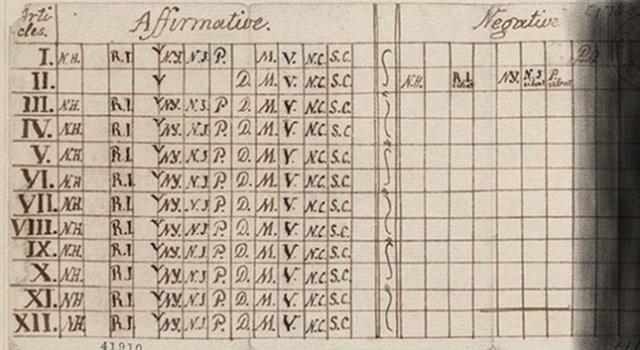 Arti
cles. Affirmative. Negative
I. N.H. R.I. NY. N.J. P. M. V. N.C. S.C.
II. D. M. V. N.C. S.C. N.H. R.I. NY. N.J. P.
III. N.H. R.I. NY. N.J. P D. M. V. N.C. S.C.
IV. N.H. R.I. NY. N.J. P. D. M. V. N.C. S.C.
V. N.H. R.I. NY. N.J. P. D. M. V. N.C. S.C.
VI. N.H R.I. NY. N.J. P. D. M. V. N.C. S.C.
VII. N.H. R.I. NY. N.J. P. D. M. V. N.C. S.C.
VIII. N.H. R.I. NY. N.J. P. D. M. V. N.C. S.C.
IX. N.H. R.I. NY. N.J. P. D. M. V. N.C. S.C.
X. N.H. R.I. NY. N.J. P. D. M. V. N.C. S.C.
XI. NH R.I. NY. N.J. P. D. M. V. N.C. S.C.
XII. NH. R.I. NY. N.J. P. D. M. V. N.C. S.C.
41910